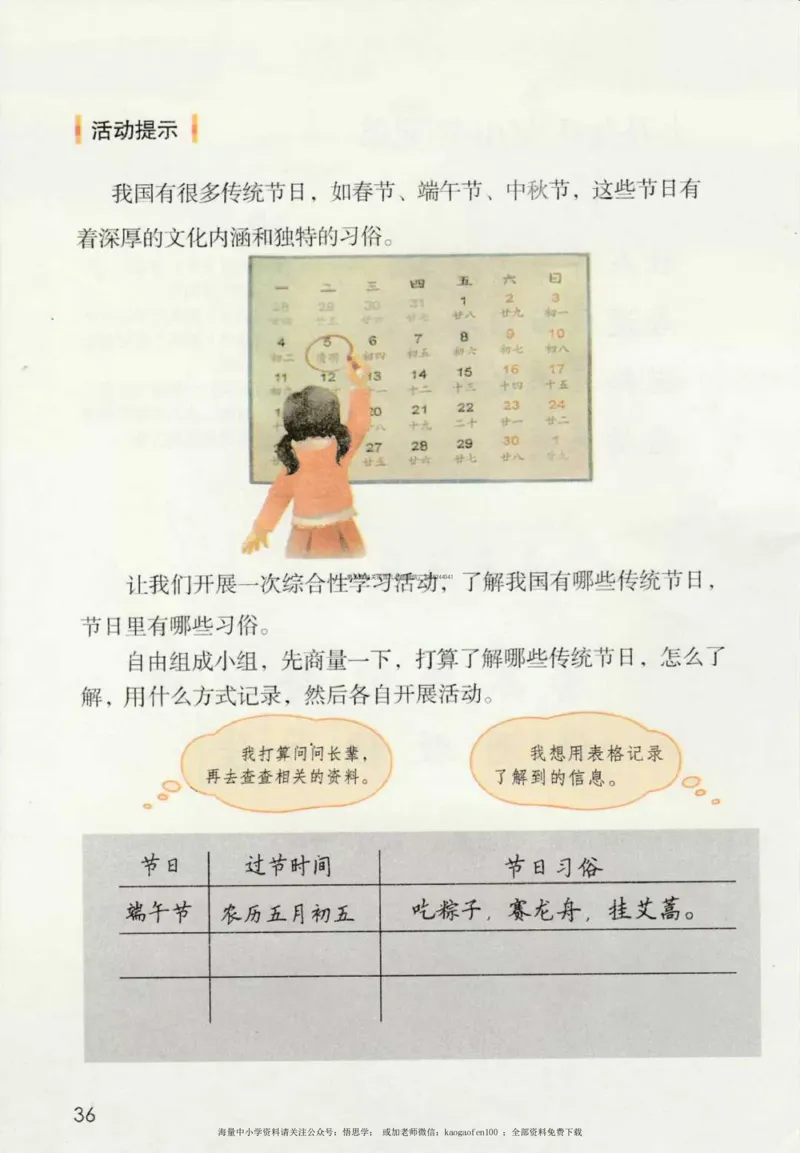 活动提示
我国有很多传统节日，如春节、端午节、中秋节，这些节日有
着深厚的文化内涵和独特的习俗。
一 二 三 四 五 六 日
28 29 30 31 1 2 3
廿八 廿九 初一
4 5 6 7 8 9 10
初二 清明 初四 初五 初六 初七 初八
11 12 13 14 15 16 17
十二 十三 十四 十五
20 21 22 23 24
十九 二十 廿一 廿二
27 28 29 30 1
廿五 廿六 廿七 廿八 廿九
让我们开展一次综合性学习活动，了解我国有哪些传统节日，
节日里有哪些习俗。
自由组成小组，先商量一下，打算了解哪些传统节日，怎么了
解，用什么方式记录，然后各自开展活动。
我打算问问长辈，
再去查查相关的资料。
我想用表格记录
了解到的信息。
节日 过节时间 节日习俗
端午节 农历五月初五 吃粽子，赛龙舟，挂艾蒿。
36
海量中小学资料请关注公众号：悟思学； 或加老师微信：kaogaofen100 ；全部资料免费下载